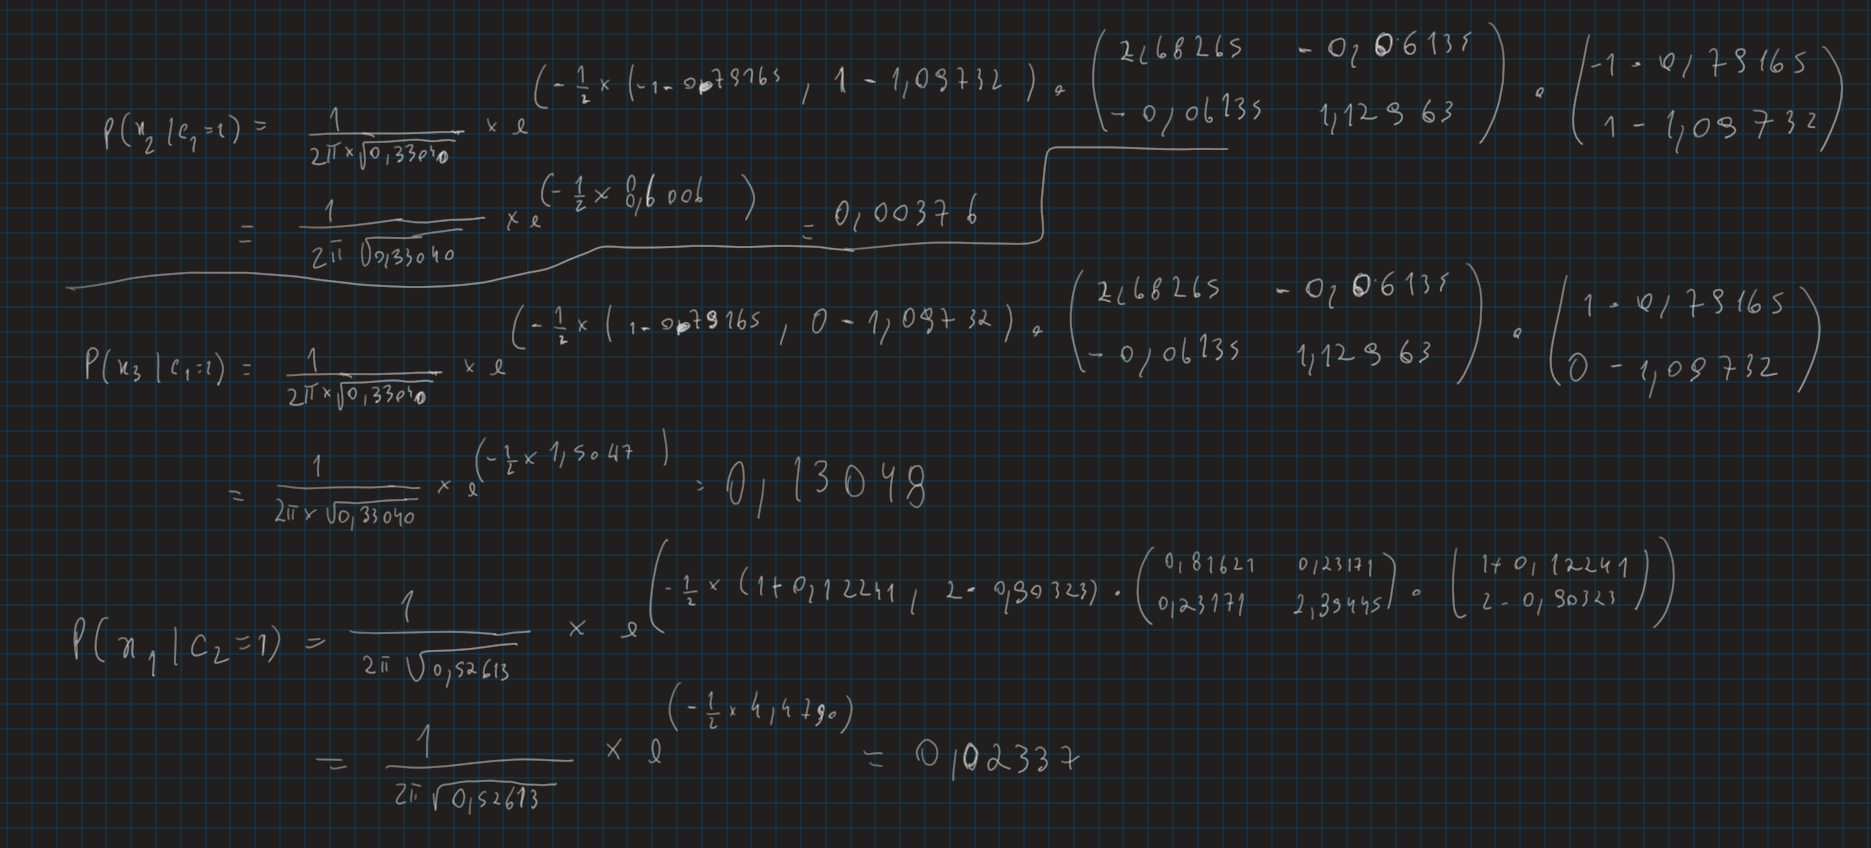 P(x₂ | c₁=1) = 1 / (2π × √0,33040) × e^(-1/2 × (-1 - 0,79165 , 1 - 1,09732) · (2,68265 -0,06135 ; -0,06135 1,12963) · (-1 - 0,79165 ; 1 - 1,09732)
= 1 / (2π √0,33040) × e^(-1/2 × 8,6006) = 0,00376
P(x₃ | c₁=1) = 1 / (2π × √0,33040) × e^(-1/2 × (1 - 0,79165 , 0 - 1,09732) · (2,68265 -0,06135 ; -0,06135 1,12963) · (1 - 0,79165 ; 0 - 1,09732)
= 1 / (2π × √0,33040) × e^(-1/2 × 1,5047) = 0,13048
P(x₁ | c₂=1) = 1 / (2π √0,52613) × e^(-1/2 × (1+0,12241 , 2 - 0,90323) · (0,81621 0,23171 ; 0,23171 2,39445) · (1+0,12241 ; 2 - 0,90323))
= 1 / (2π √0,52613) × e^(-1/2 × 4,4790) = 0,02337